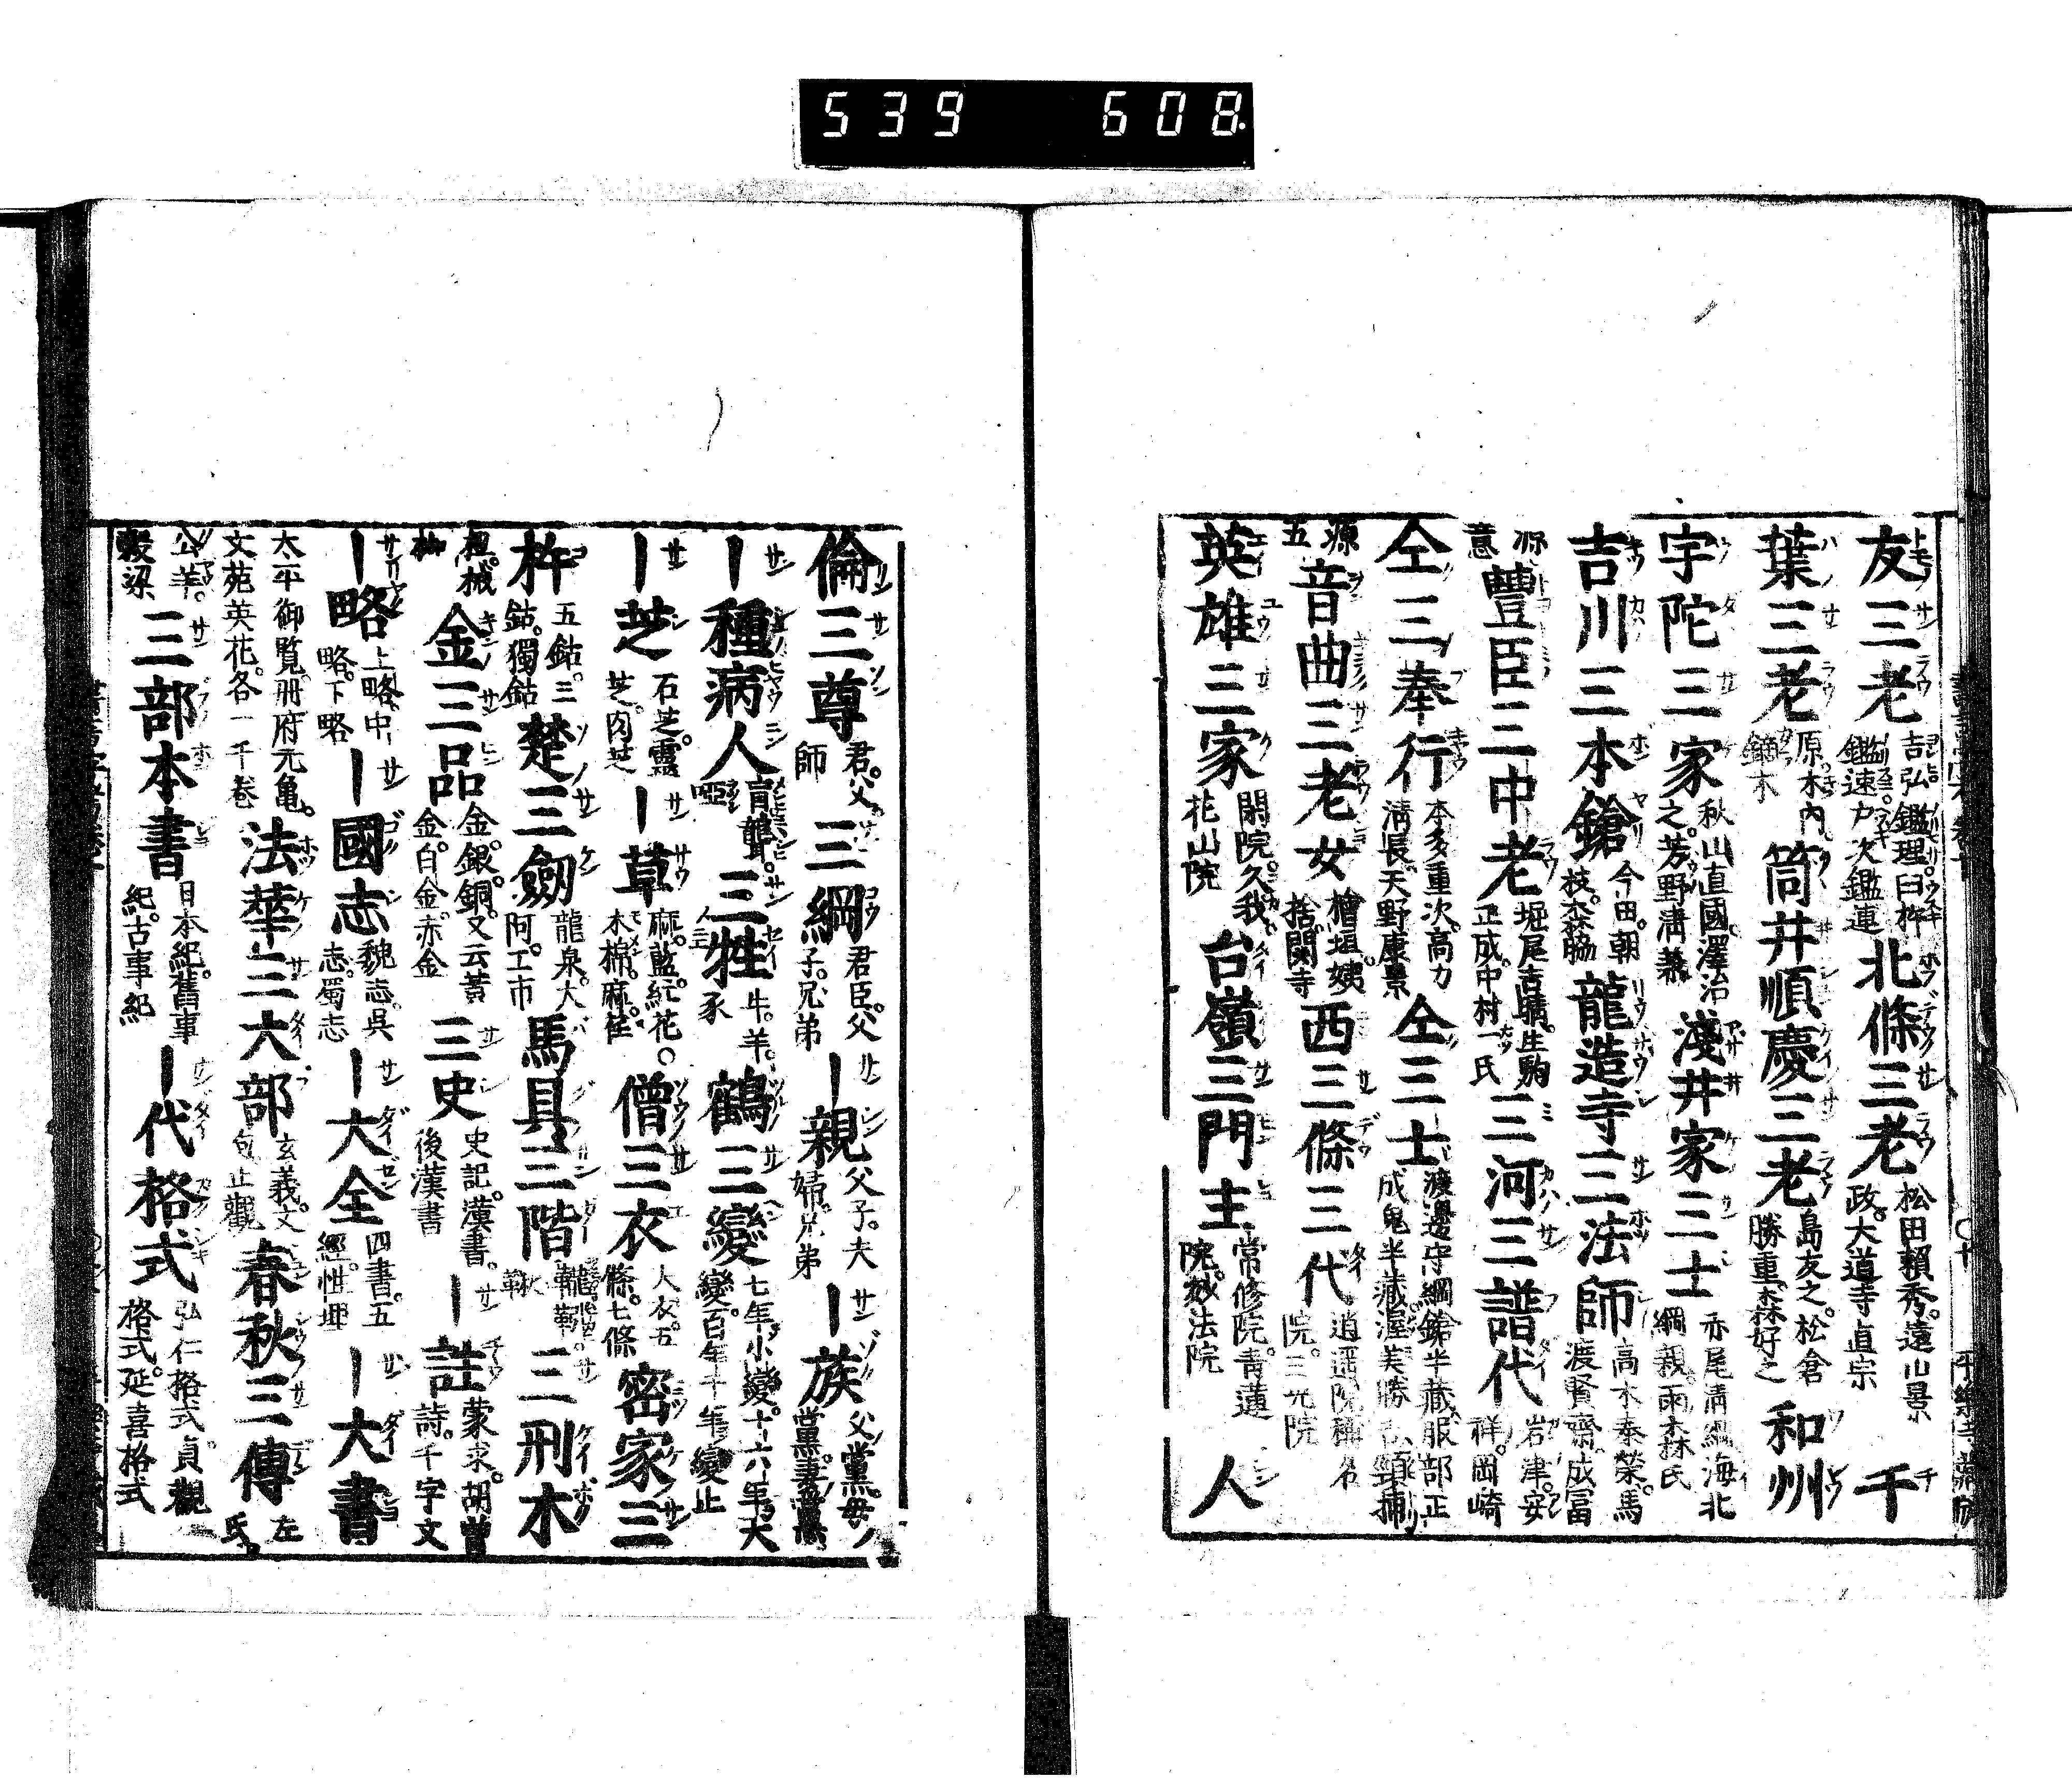 539 608
友三老 吉弘鑑理。臼杵鑑速。戸次鑑連 北條三老 松田頼秀。遠山景政。大道寺直宗 千
葉三老 原。木内。鏑木 筒井順慶三老 島友之。松倉勝重。森好之 和州
宇陀三家 秋山直國。澤治之。芳野清兼 淺井家三士 赤尾清綱 海北綱親。雨森氏
吉川三本鎗 今田。朝枝。森脇 龍造寺三法師 高木泰榮。馬渡賢齋。成冨
源意 豐臣三中老 堀尾吉晴。生駒正成。中村一氏 三河三譜代 岩津。安祥。岡崎
仝三奉行 本多重次。高力清長。天野康景 仝三士 渡邊守綱鎗半藏 服部正成鬼半藏 渥美勝 頸捕
源五 音曲三老女 檜垣。姨捨。関寺 西三條三代 逍遥院 稱名院。三光院
英雄三家 閑院。久我。花山院 台嶺三門主 常修院。青蓮院。妙法院 人
倫三尊 君。父。師 三綱 君臣。父子。兄弟 ー親 父子。夫婦。兄弟 ー族 父黨。母黨。妻黨
ー種病人 盲。聾。啞 三牲 牛。羊。豕 鶴三變 七年小變。十六年大變。百年千年變止
ー芝 石芝。靈芝。肉芝 ー草 麻。藍。紅花。木棉。麻 〇僧三衣 大衣。五條。七條 密家三
杵 五鈷。三鈷。獨鈷 楚三劒 龍泉。大阿。工市 馬具三階 鞦 三刑木
杻。械 金三品 金。銀。銅。又云黃金。白金。赤金 三史 史記。漢書。後漢書 ー註 蒙求。胡曾詩。千字文
ー略 上略。中略。下略 ー國志 魏志。吳志。蜀志 ー大全 四書。五經。性理 ー大書
太平御覽。冊府元亀。文苑英花。各一千巻 法華三大部 玄義。文句 止觀 春秋三傳 左氏。
公羊。穀梁 三部本書 日本紀。舊事紀。古事紀 ー代格式 弘仁格式 貞觀格式。延喜格式